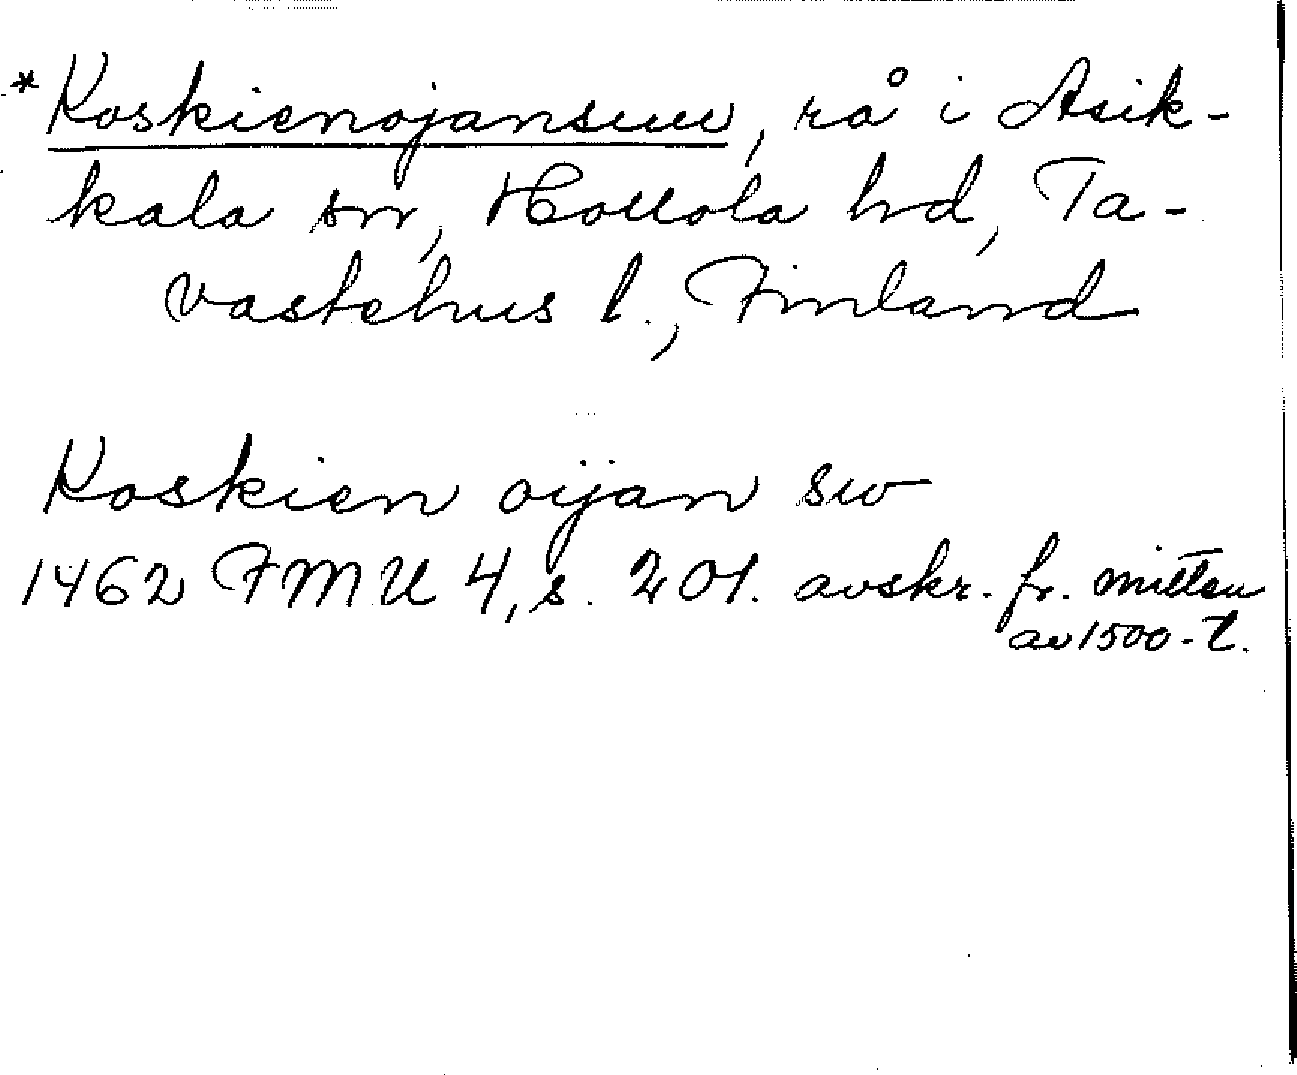 *Koskienojansuu, rå i Asik-
kala sn, Hollola hd, Ta-
vastehus l., Finland
Koskien oijan sw
1462 FMU 4, s. 201. avskr. fr. mitten
av 1500-t.